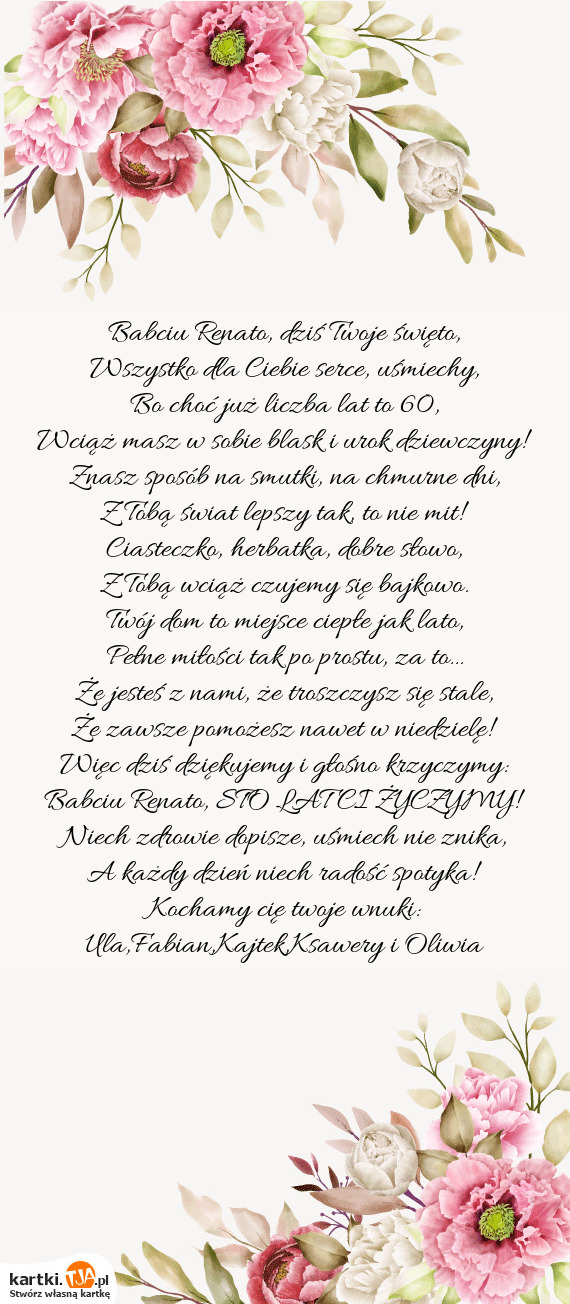 Babciu Renato, dziś Twoje święto,
Wszystko dla Ciebie serce, uśmiechy,
Bo choć już liczba lat to 60,
Wciąż masz w sobie blask i urok dziewczyny!
Znasz sposób na smutki, na chmurne dni,
Z Tobą świat lepszy tak, to nie mit!
Ciasteczko, herbatka, dobre słowo,
Z Tobą wciąż czujemy się bajkowo.
Twój dom to miejsce ciepłe jak lato,
Pełne miłości tak po prostu, za to...
Że jesteś z nami, że troszczysz się stale,
Że zawsze pomożesz nawet w niedzielę!
Więc dziś dziękujemy i głośno krzyczymy:
Babciu Renato, STO LAT CI ŻYCZYMY!
Niech zdrowie dopisze, uśmiech nie znika,
A każdy dzień niech radość spotyka!
Kochamy cię twoje wnuki:
Ula,Fabian,Kajtek,Ksawery i Oliwia
kartki.TJA.pl
Stwórz własną kartkę